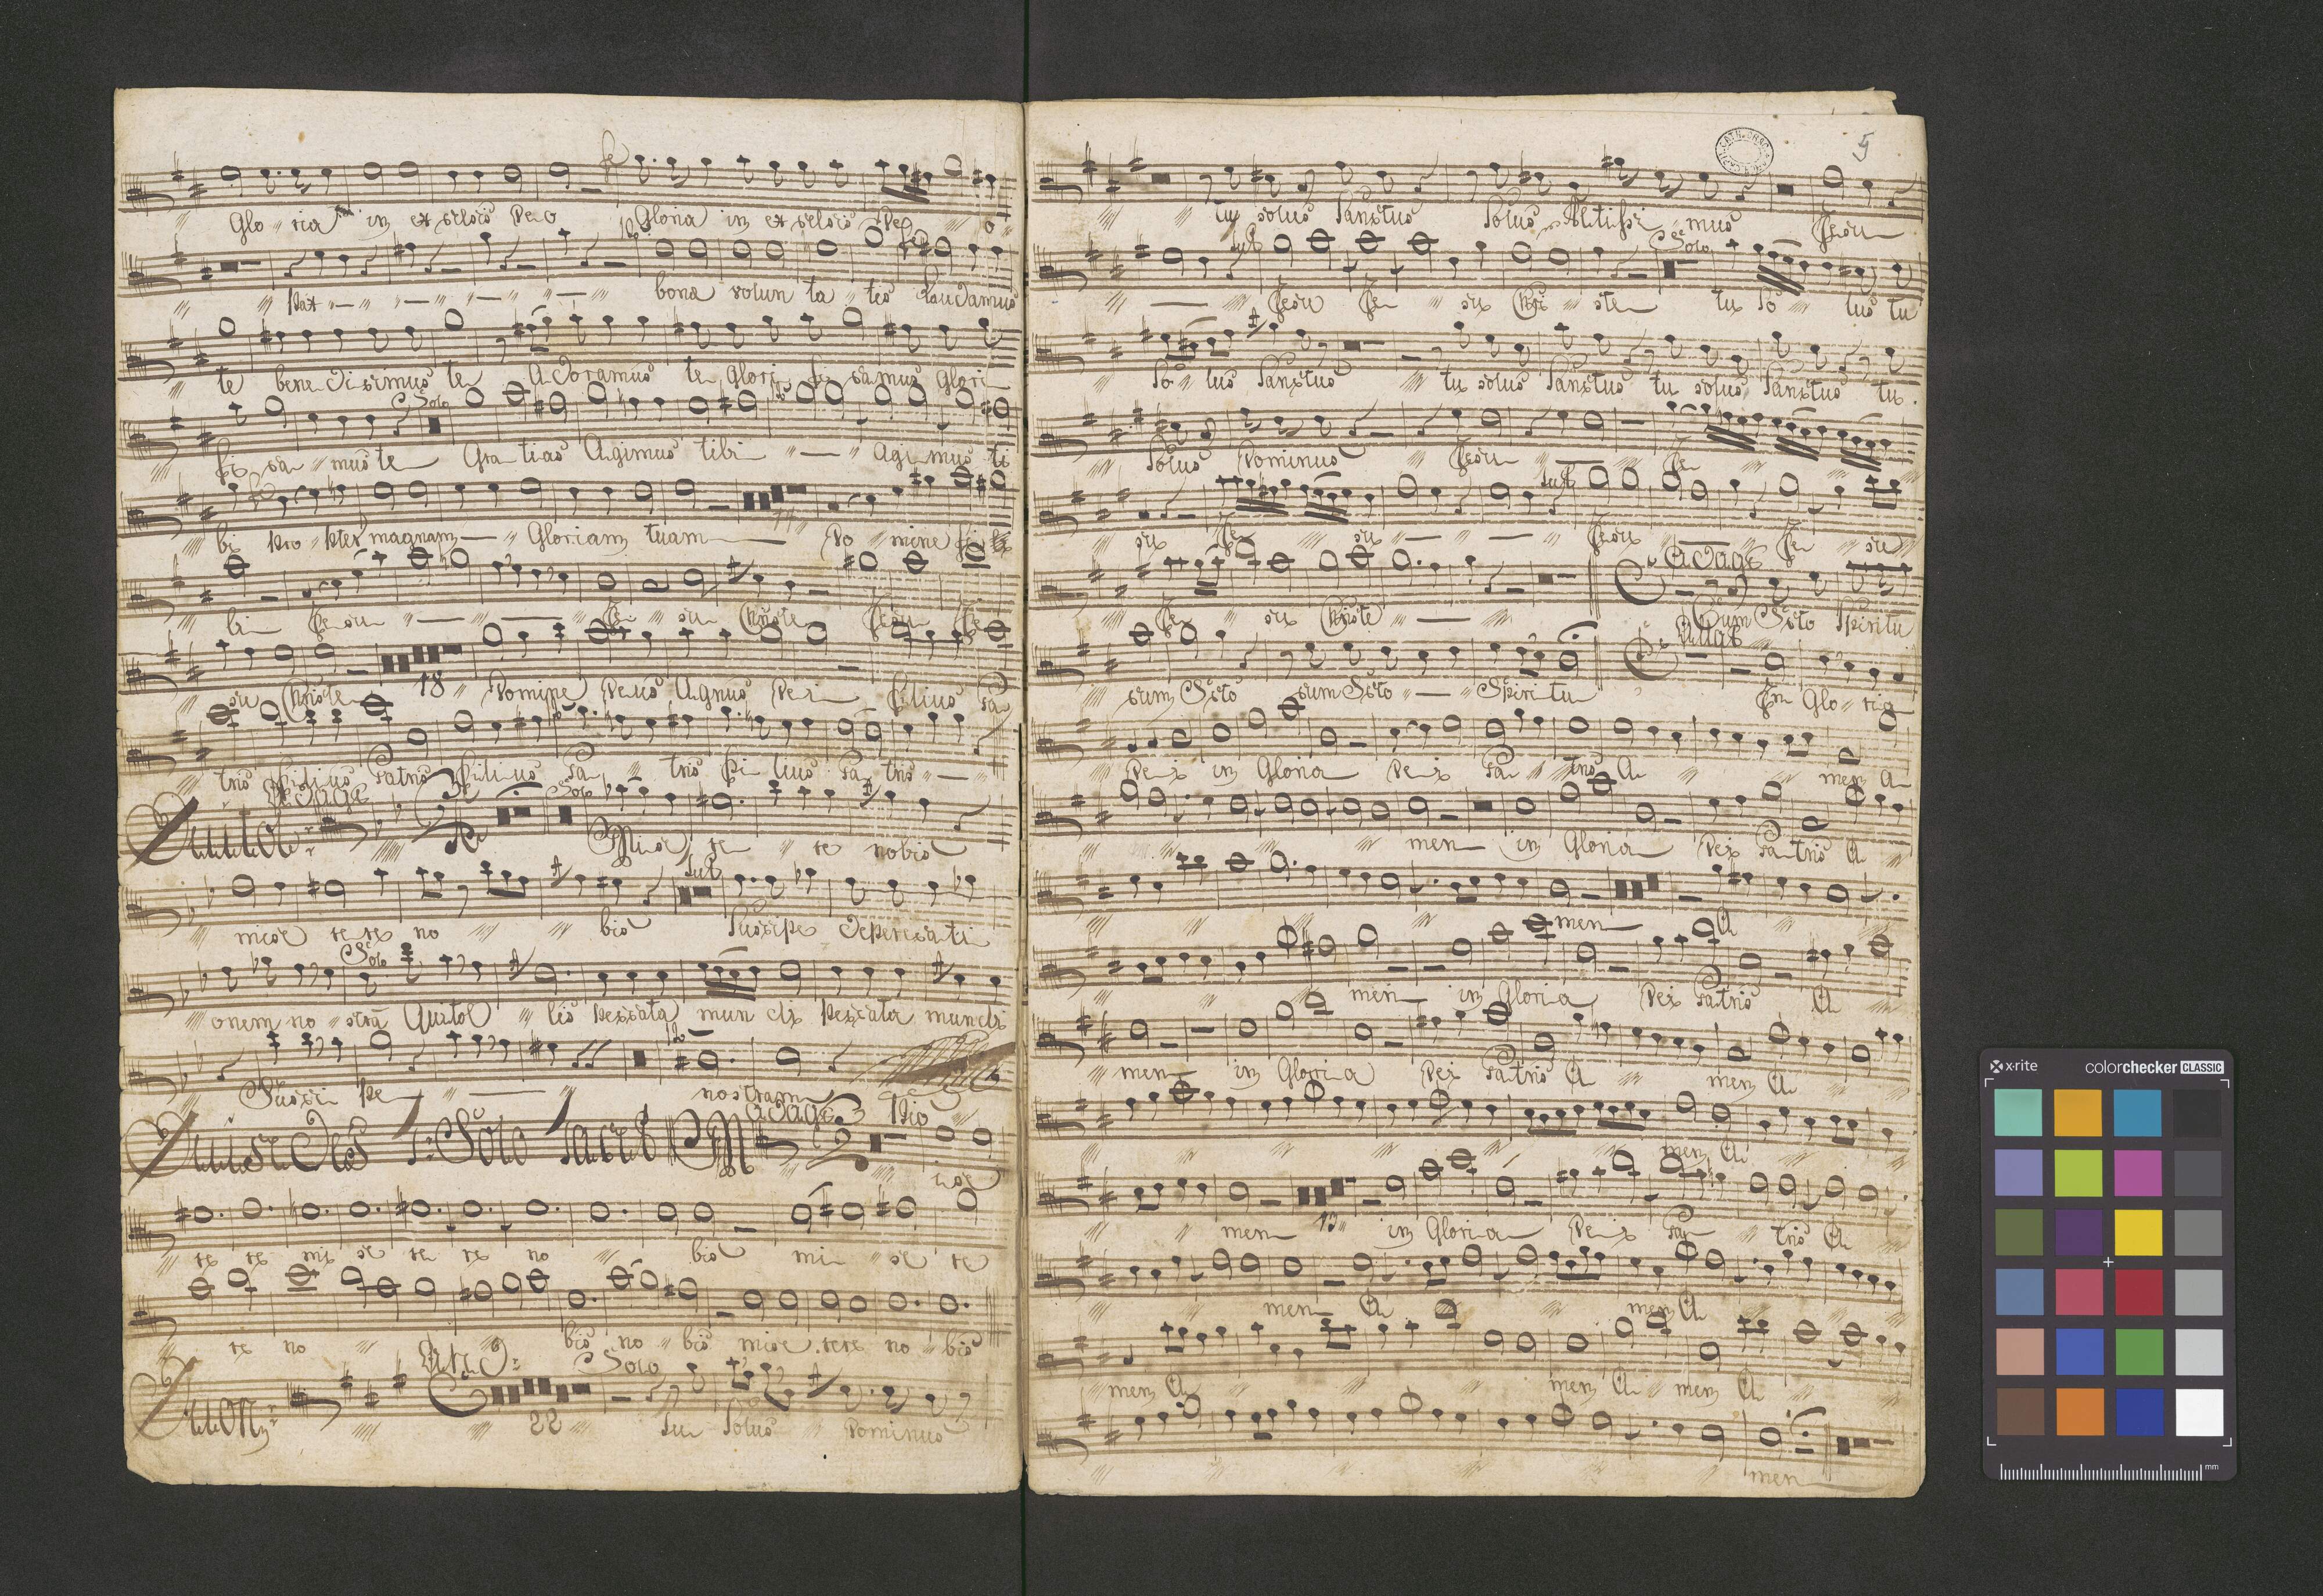 Glo ria in excelsis Deo Gloria in excelsis De o
Pax bonæ volun ta tis Laudamus
te bene dicimus te Adoramus te Glori fi camus Glori
Solo
fi ca mus te Gra tias Agimus tibi Agimus ti
bi pro pter magnam Gloriam tuam Do mine fi li
11
li Jesu Je su Christe Jesu Je
su Christe Domine Deus Agnus Dei filius Pa
18
tris filius Patris filius Pa tris fi lius Pa tris
Adagº Solo
Mise re re nobis
mise re re no bis Suscipe deprecati
Solo
onem no stra Qui tol lis peccata mun di peccata mundi
Susci pe nostram
Adagº
Solo tacet
mise
re re mi se re re no bis mi se re
re no bis no bis mise rere no bis
And: Solo
22 Tu Solus Dominus
5
tu solus Sanctus Solus Altissi mus Jesu
Solo
Jesu Je su Chri ste tu So lus tu
So lus Sanctus tu solus Sanctus tu solus Sanctus tu
Solus Dominus Jesu Je
su Je su Jesu Je su
Adagº
Je su Christe Cum Scto Spiritu
cum Scto cum Scto Spiritu In Glo ria
De i in Gloria De i Pa tris A men A
men in Gloria Dei Patris A
men A
men in Gloria Dei Patris A
men in Gloria Dei Patris A men A
men A
men 13 in Gloria De i Pa tris A
men A men A
men A men A men A
men
x-rite colorchecker CLASSIC
mm